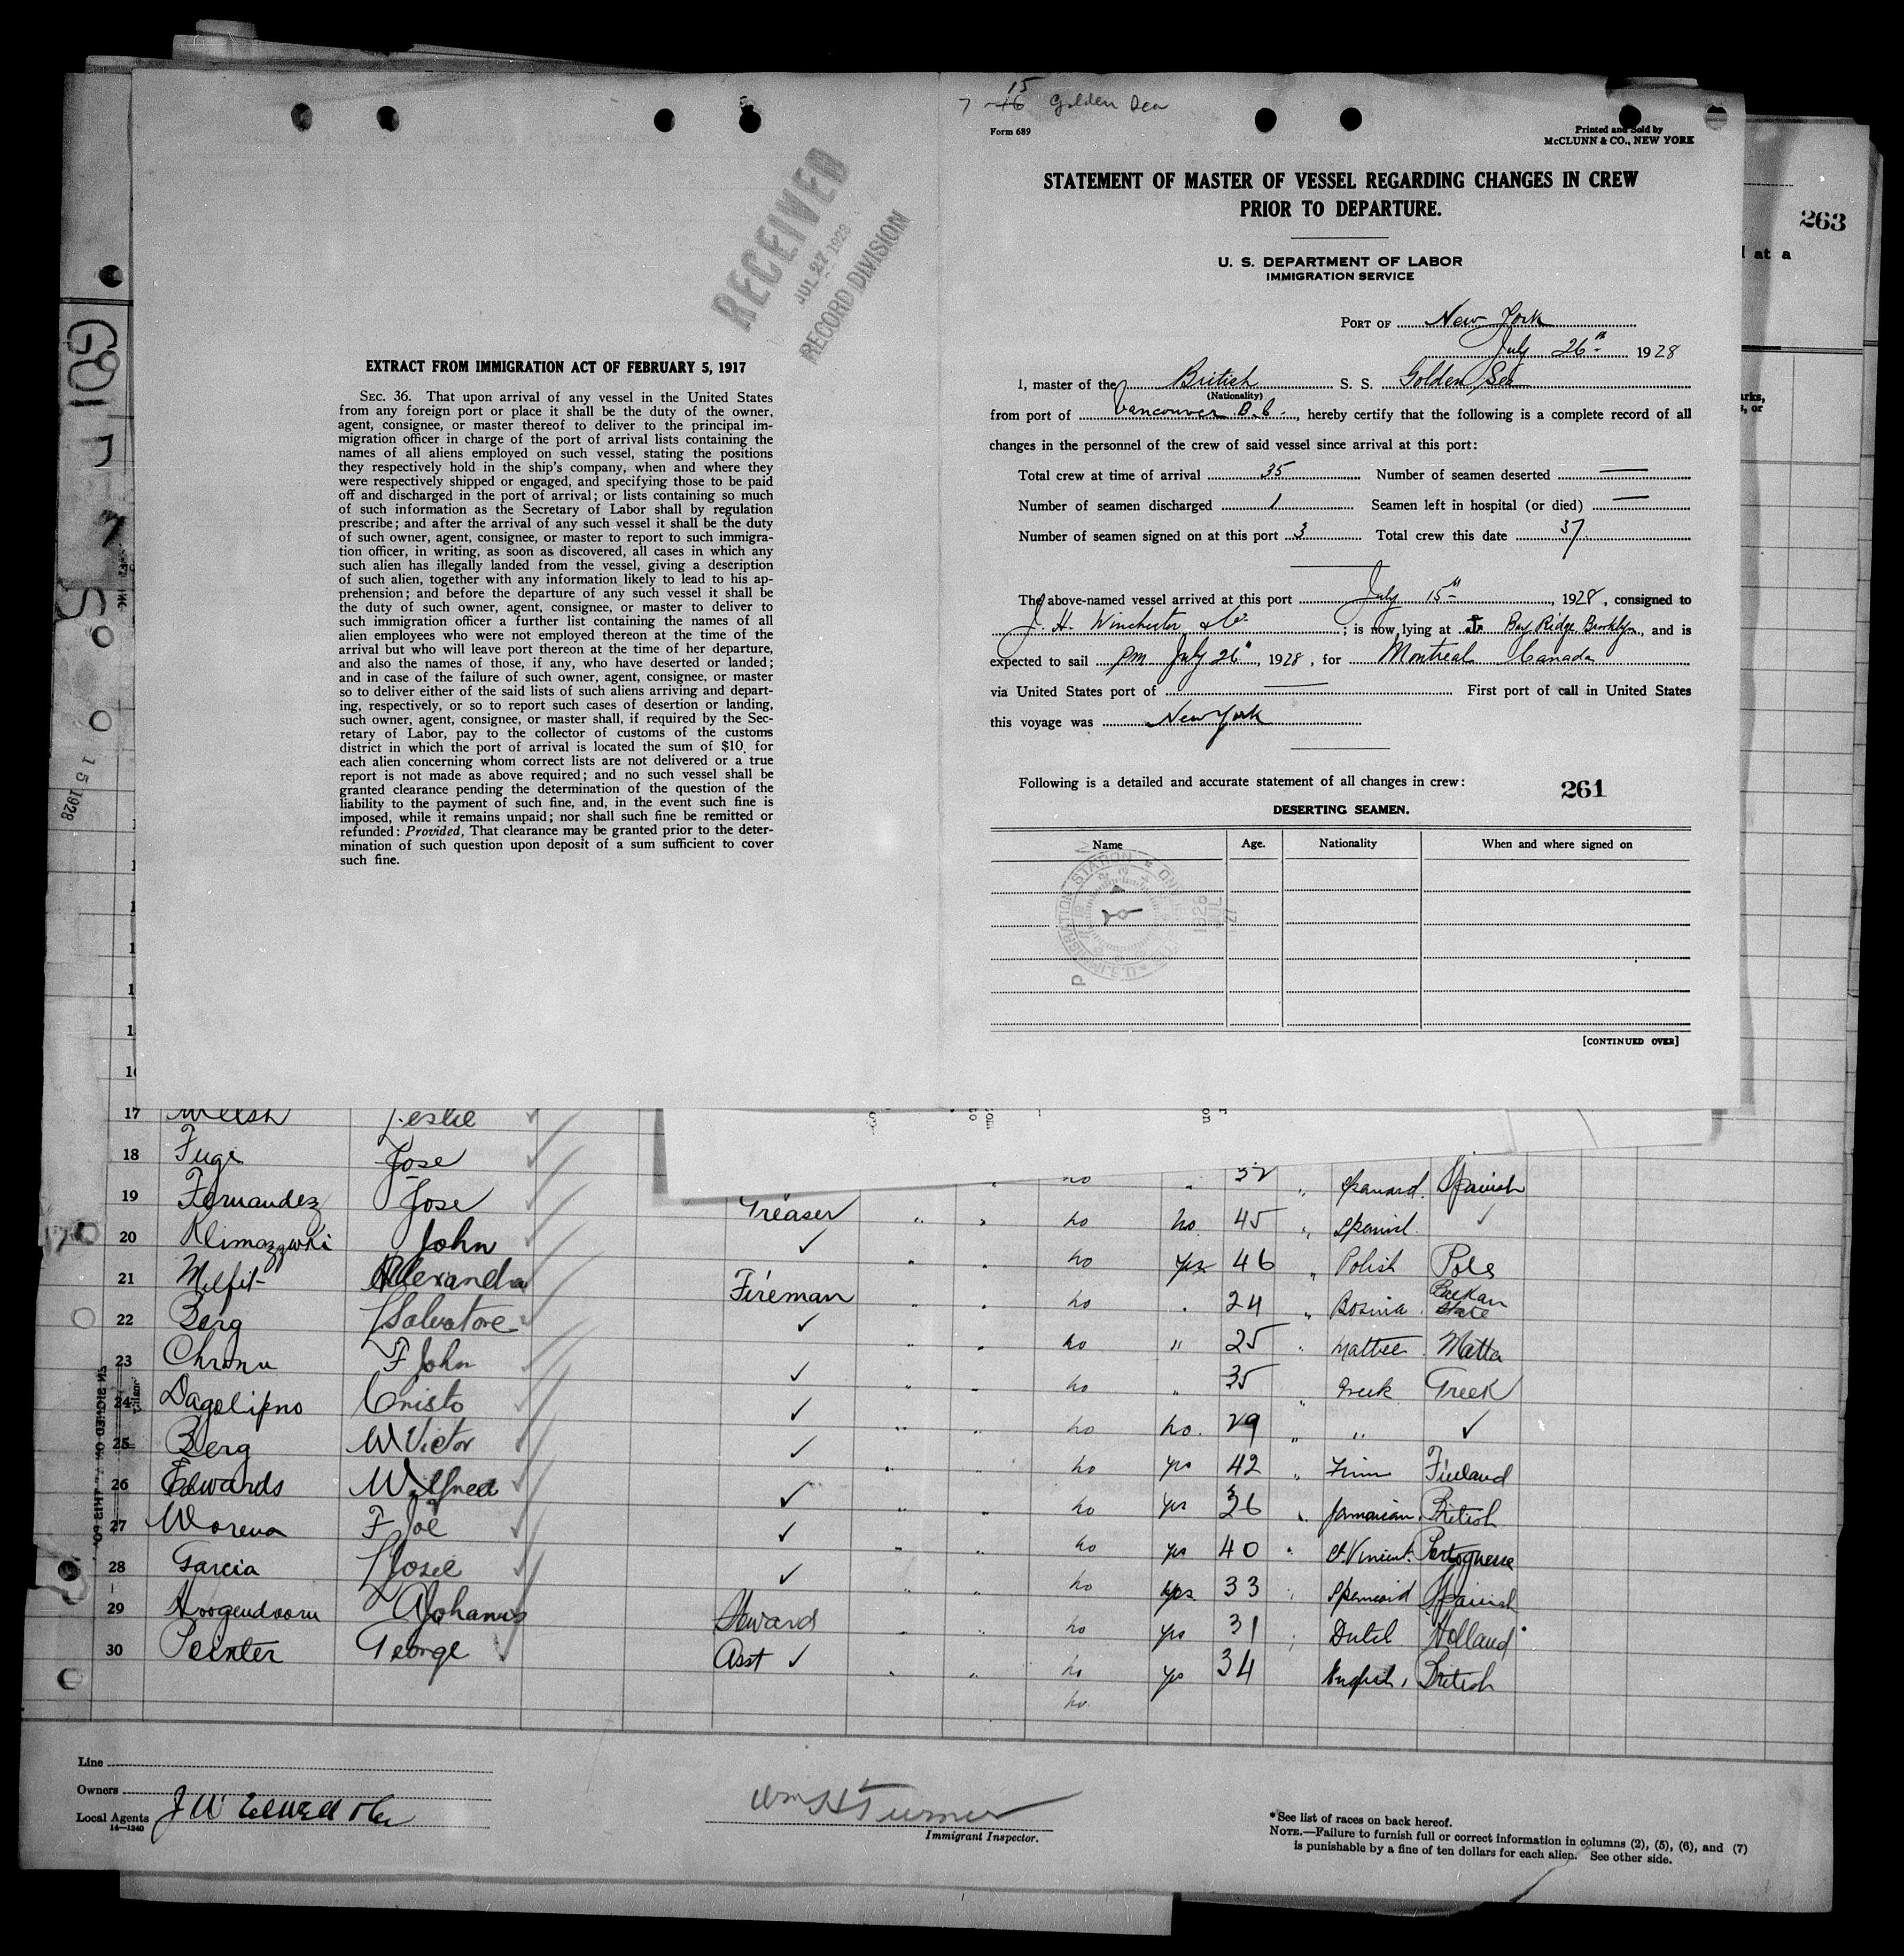 15
7 - 16 Golden Sea
Form 689
Printed and Sold by
McCLUNN & CO., NEW YORK
STATEMENT OF MASTER OF VESSEL REGARDING CHANGES IN CREW
PRIOR TO DEPARTURE.
U. S. DEPARTMENT OF LABOR
IMMIGRATION SERVICE
PORT OF New York
July 26th 1928
I, master of the British S. S. Golden Sea
(Nationality)
from port of Vancouver B.C., hereby certify that the following is a complete record of all
changes in the personnel of the crew of said vessel since arrival at this port:
Total crew at time of arrival 35 Number of seamen deserted —
Number of seamen discharged 1 Seamen left in hospital (or died) —
Number of seamen signed on at this port 3 Total crew this date 37
The above-named vessel arrived at this port July 15th, 1928, consigned to
J. H. Winchester & Co.; is now lying at Bay Ridge, Brooklyn, and is
expected to sail pm July 26", 1928, for Montreal Canada
via United States port of — First port of call in United States
this voyage was New York
Following is a detailed and accurate statement of all changes in crew:
261
DESERTING SEAMEN.
Name Age. Nationality When and where signed on
U.S. IMMIGRATION STATION
1928
JUL
[CONTINUED OVER]
RECEIVED
JUL 27 1928
RECORD DIVISION
EXTRACT FROM IMMIGRATION ACT OF FEBRUARY 5, 1917
SEC. 36. That upon arrival of any vessel in the United States
from any foreign port or place it shall be the duty of the owner,
agent, consignee, or master thereof to deliver to the principal im-
migration officer in charge of the port of arrival lists containing the
names of all aliens employed on such vessel, stating the positions
they respectively hold in the ship's company, when and where they
were respectively shipped or engaged, and specifying those to be paid
off and discharged in the port of arrival; or lists containing so much
of such information as the Secretary of Labor shall by regulation
prescribe; and after the arrival of any such vessel it shall be the duty
of such owner, agent, consignee, or master to report to such immigra-
tion officer, in writing, as soon as discovered, all cases in which any
such alien has illegally landed from the vessel, giving a description
of such alien, together with any information likely to lead to his ap-
prehension; and before the departure of any such vessel it shall be
the duty of such owner, agent, consignee, or master to deliver to
such immigration officer a further list containing the names of all
alien employees who were not employed thereon at the time of the
arrival but who will leave port thereon at the time of her departure,
and also the names of those, if any, who have deserted or landed;
and in case of the failure of such owner, agent, consignee, or master
so to deliver either of the said lists of such aliens arriving and depart-
ing, respectively, or so to report such cases of desertion or landing,
such owner, agent, consignee, or master shall, if required by the Sec-
retary of Labor, pay to the collector of customs of the customs
district in which the port of arrival is located the sum of $10 for
each alien concerning whom correct lists are not delivered or a true
report is not made as above required; and no such vessel shall be
granted clearance pending the determination of the question of the
liability to the payment of such fine, and, in the event such fine is
imposed, while it remains unpaid; nor shall such fine be remitted or
refunded: Provided, That clearance may be granted prior to the deter-
mination of such question upon deposit of a sum sufficient to cover
such fine.
263
at a
15 1928
17 Welsh Leslie
18 Fuge Jose no 32 Spaniard Spanish
19 Fernandez Jose Greaser no no 45 Spanish ✓
20 John ✓ no yes 46 Polish Pole
21 Alexander Fireman no 24 Bosnia Balkan State
22 Berg Salvatore ✓ no " 25 Maltese Malta
23 F John ✓ no " 35 Greek Greek
24 Cristo ✓ no no 29 " ✓
25 Berg W Victor ✓ no yes 42 Finn Finland
26 Edwards Wilfred ✓ no yes 36 Jamaican British
27 F Joe ✓ no yes 40 St. Vincent Portoguese
28 Garcia Josee ✓ no yes 33 Spaniard Spanish
29 Hoogendoorn Johanns Steward no yes 31 Dutch Holland
30 Peinter George Asst ✓ no yes 34 English British
no
Line
Owners
Local Agents J W Elwell & Co
14—1240
Wm H Turner
Immigrant Inspector.
*See list of races on back hereof.
NOTE.—Failure to furnish full or correct information in columns (2), (5), (6), and (7)
is punishable by a fine of ten dollars for each alien. See other side.